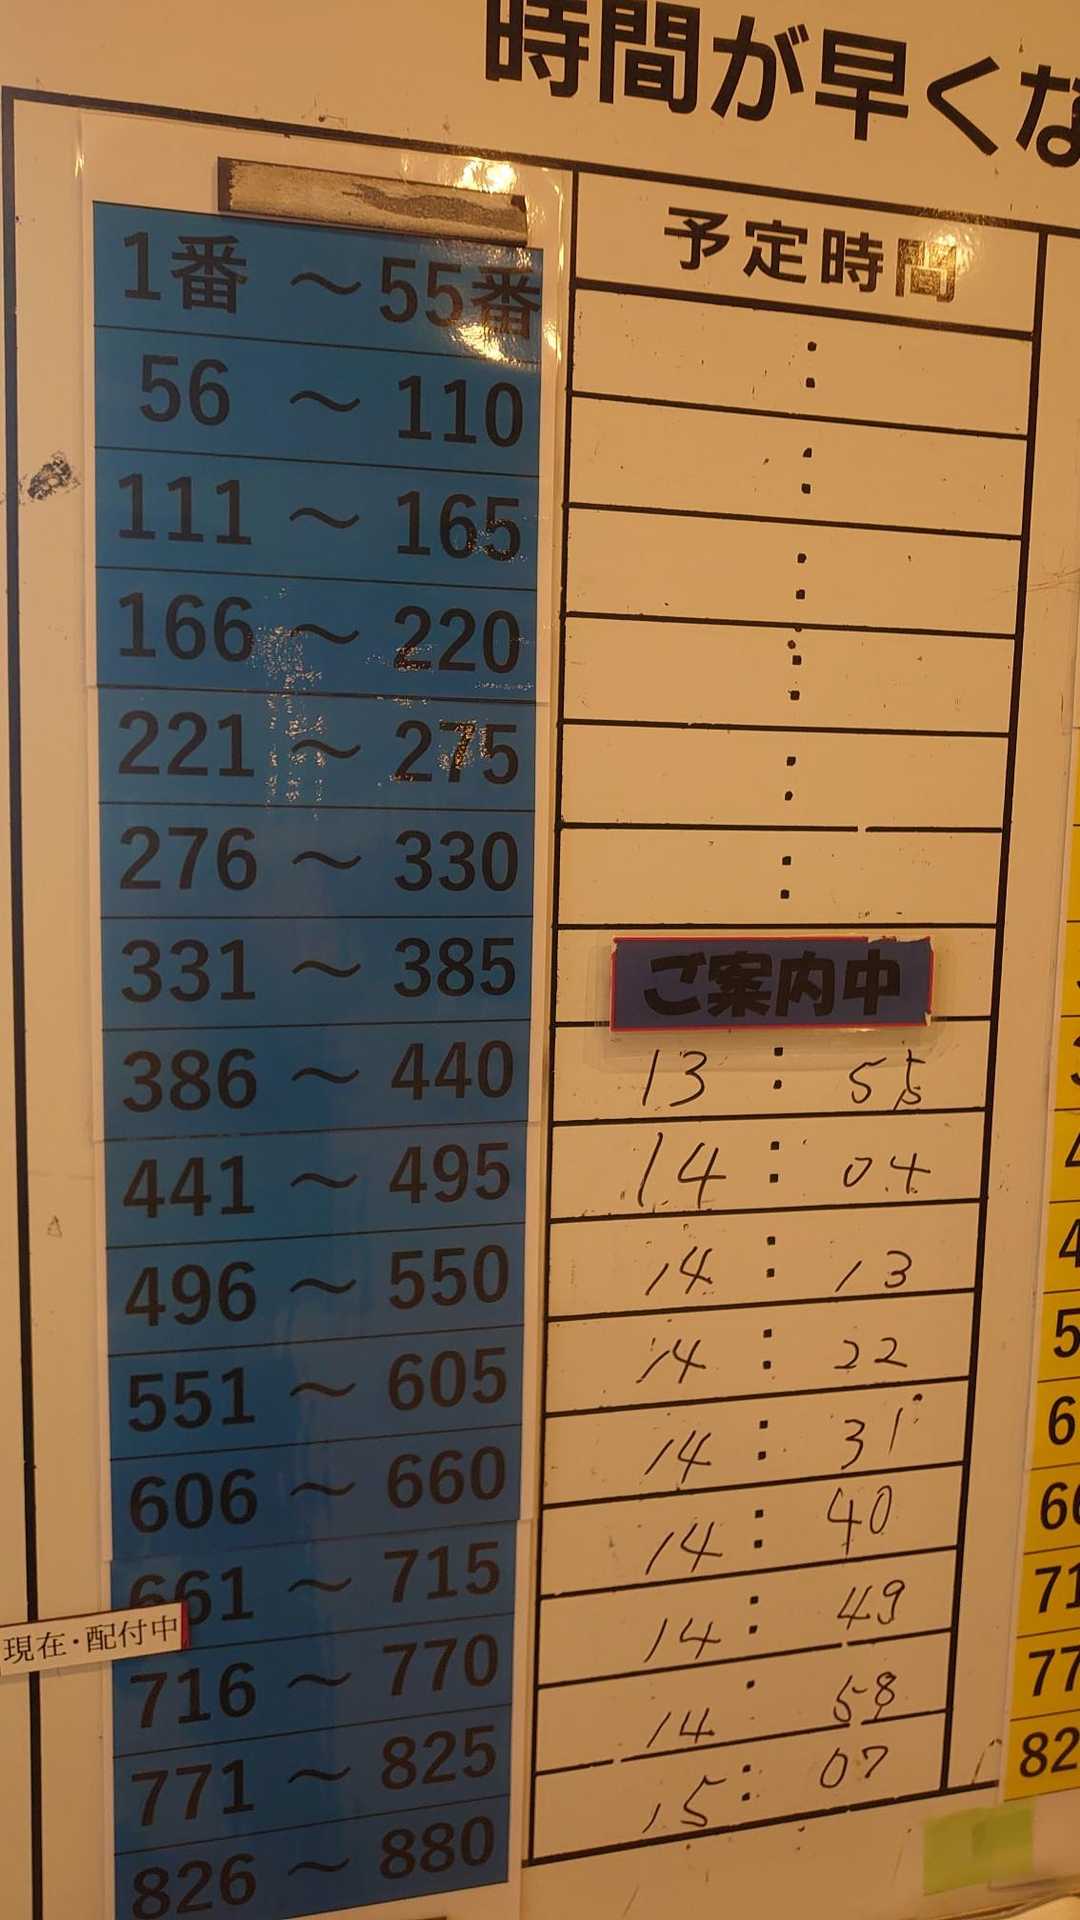 時間が早くな
予定時間
1番 ～ 55番 :
56 ～ 110 :
111 ～ 165 :
166 ～ 220 :
221 ～ 275 :
276 ～ 330 :
331 ～ 385 ご案内中
386 ～ 440 13 : 55
441 ～ 495 14 : 04
496 ～ 550 14 : 13
551 ～ 605 14 : 22
606 ～ 660 14 : 31
661 ～ 715 14 : 40
現在・配付中
716 ～ 770 14 : 49
771 ～ 825 14 : 58
826 ～ 880 15 : 07